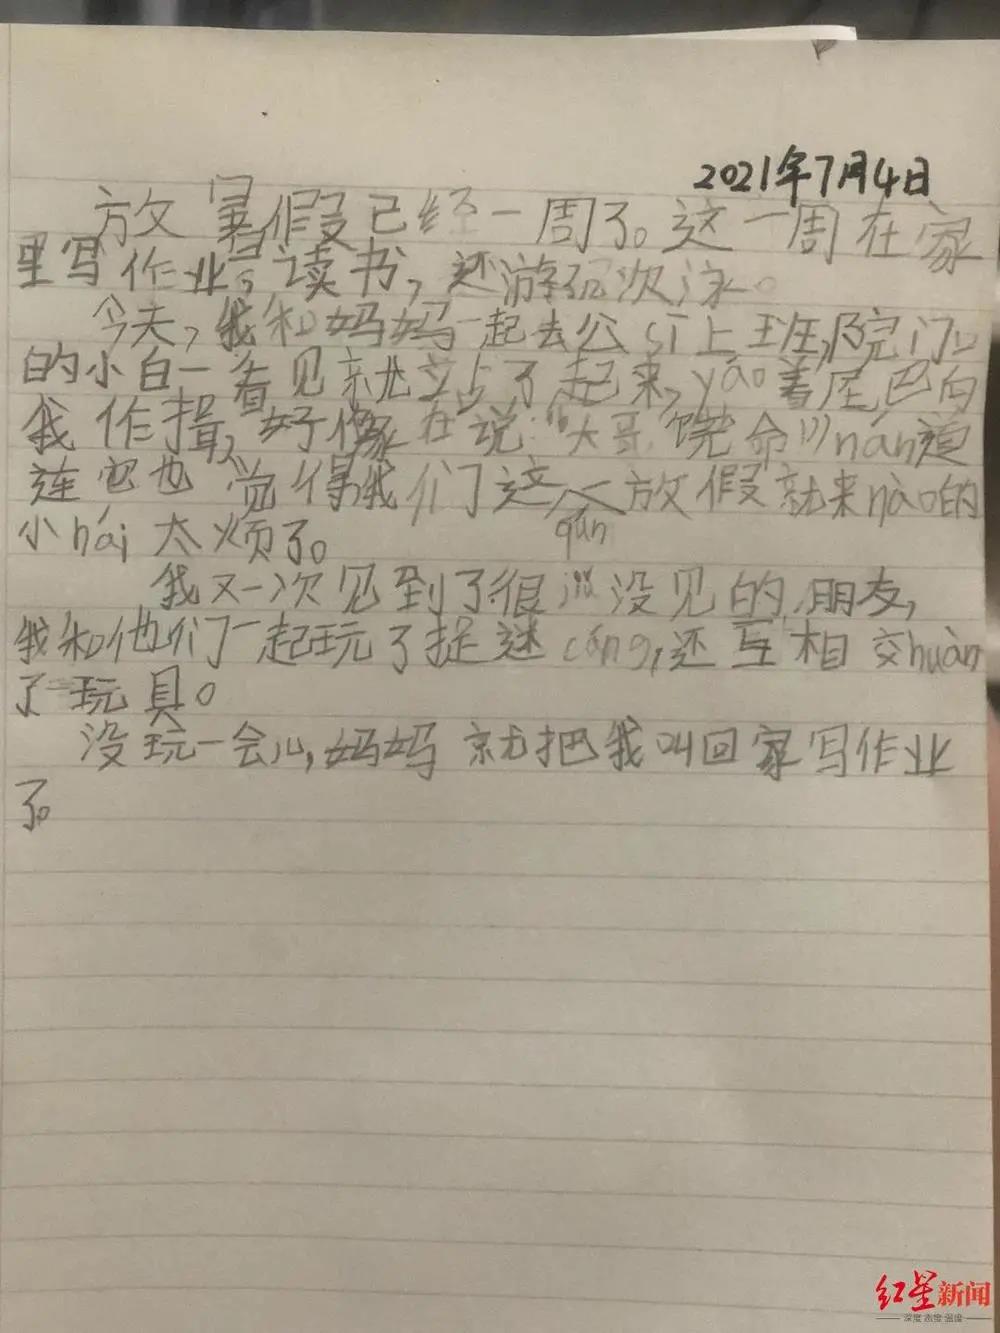 2021年7月4日
放暑假已经一周了。这一周在家
里写作业,读书,还游了次泳。
今天,我和妈妈一起去公司上班,院门口
的小白一看见就站了起来,yáo着尾巴向
我作揖,好像在说:"大哥饶命!"nán道
连它也觉得我们这一放假就来nào的
qún
小hái太烦了。
我又一次见到了很没见的朋友,
我和他们一起玩了捉迷cáng,还互相交huàn
了玩具。
没玩一会儿,妈妈就把我叫回家写作业
了。
红星新闻
深度 态度 温度